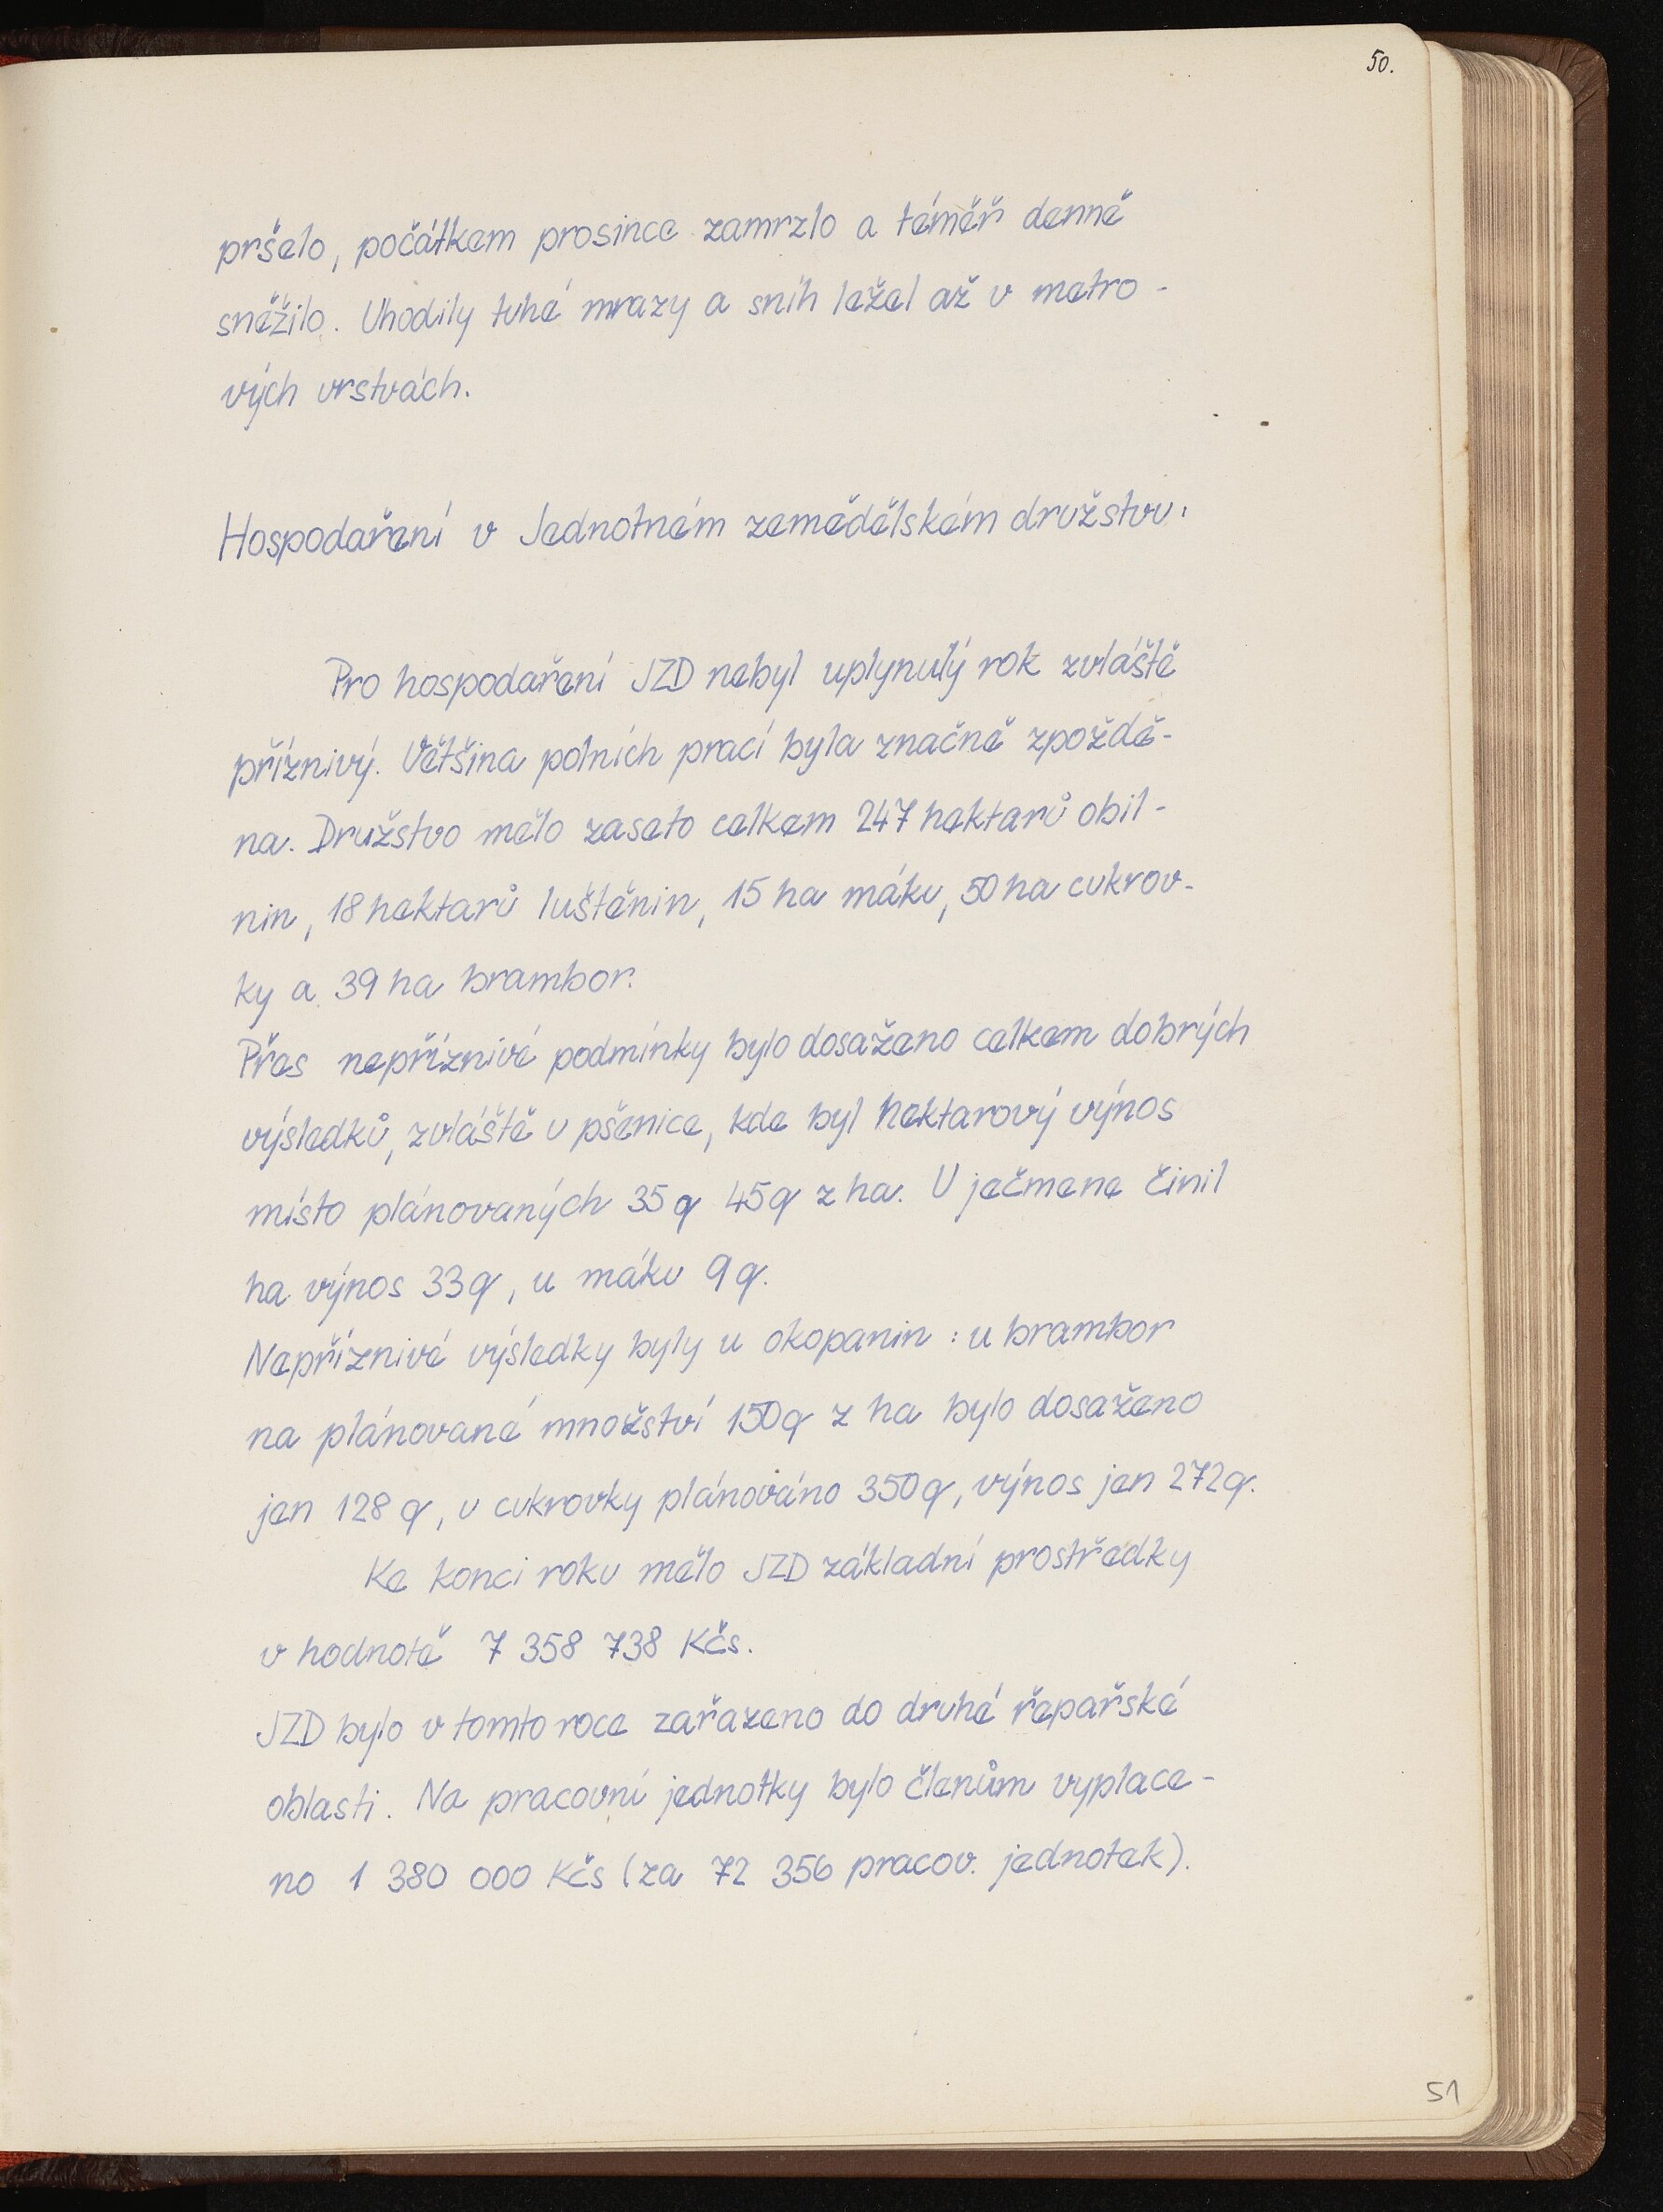 50.
pršelo, počátkem prosince zamrzlo a téměř denně
sněžilo. Uhodily tuhé mrazy a sníh ležel až v metro-
vých vrstvách.
Hospodaření v Jednotném zemědělském družstvu.
Pro hospodaření JZD nebyl uplynulý rok zvláště
příznivý. Většina polních prací byla značně zpoždě-
na. Družstvo mělo zaseto celkem 247 hektarů obil-
nin, 18 hektarů luštěnin, 15 ha máku, 50 ha cukrov-
ky a 39 ha brambor.
Přes nepříznivé podmínky bylo dosaženo celkem dobrých
výsledků, zvláště u pšenice, kde byl hektarový výnos
místo plánovaných 35 q 45 q z ha. U ječmene činil
ha výnos 33 q, u máku 9 q.
Nepříznivé výsledky byly u okopanin : u brambor
na plánované množství 150 q z ha bylo dosaženo
jen 128 q, u cukrovky plánováno 350 q, výnos jen 272 q.
Ke konci roku mělo JZD základní prostředky
v hodnotě 7 358 738 Kčs.
JZD bylo v tomto roce zařazeno do druhé řepařské
oblasti. Na pracovní jednotky bylo členům vyplace-
no 1 380 000 Kčs (za 72 356 pracov. jednotek).
51